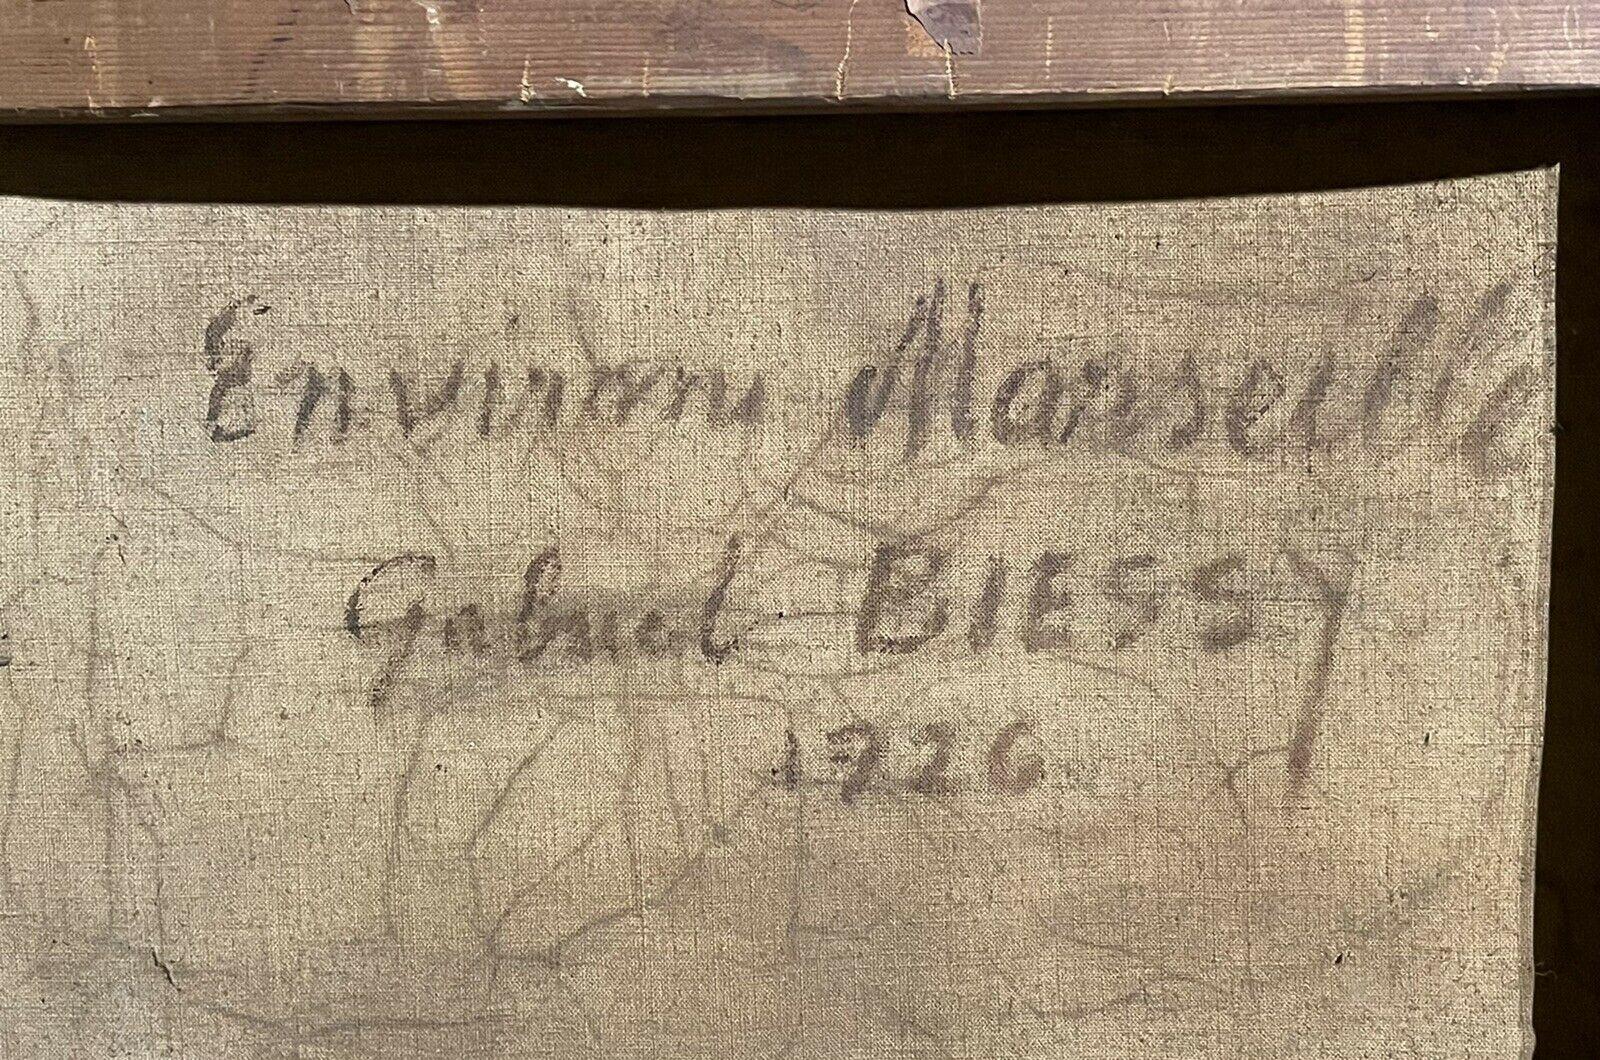 Environ Marseille
Gabriel BIESSY
1926